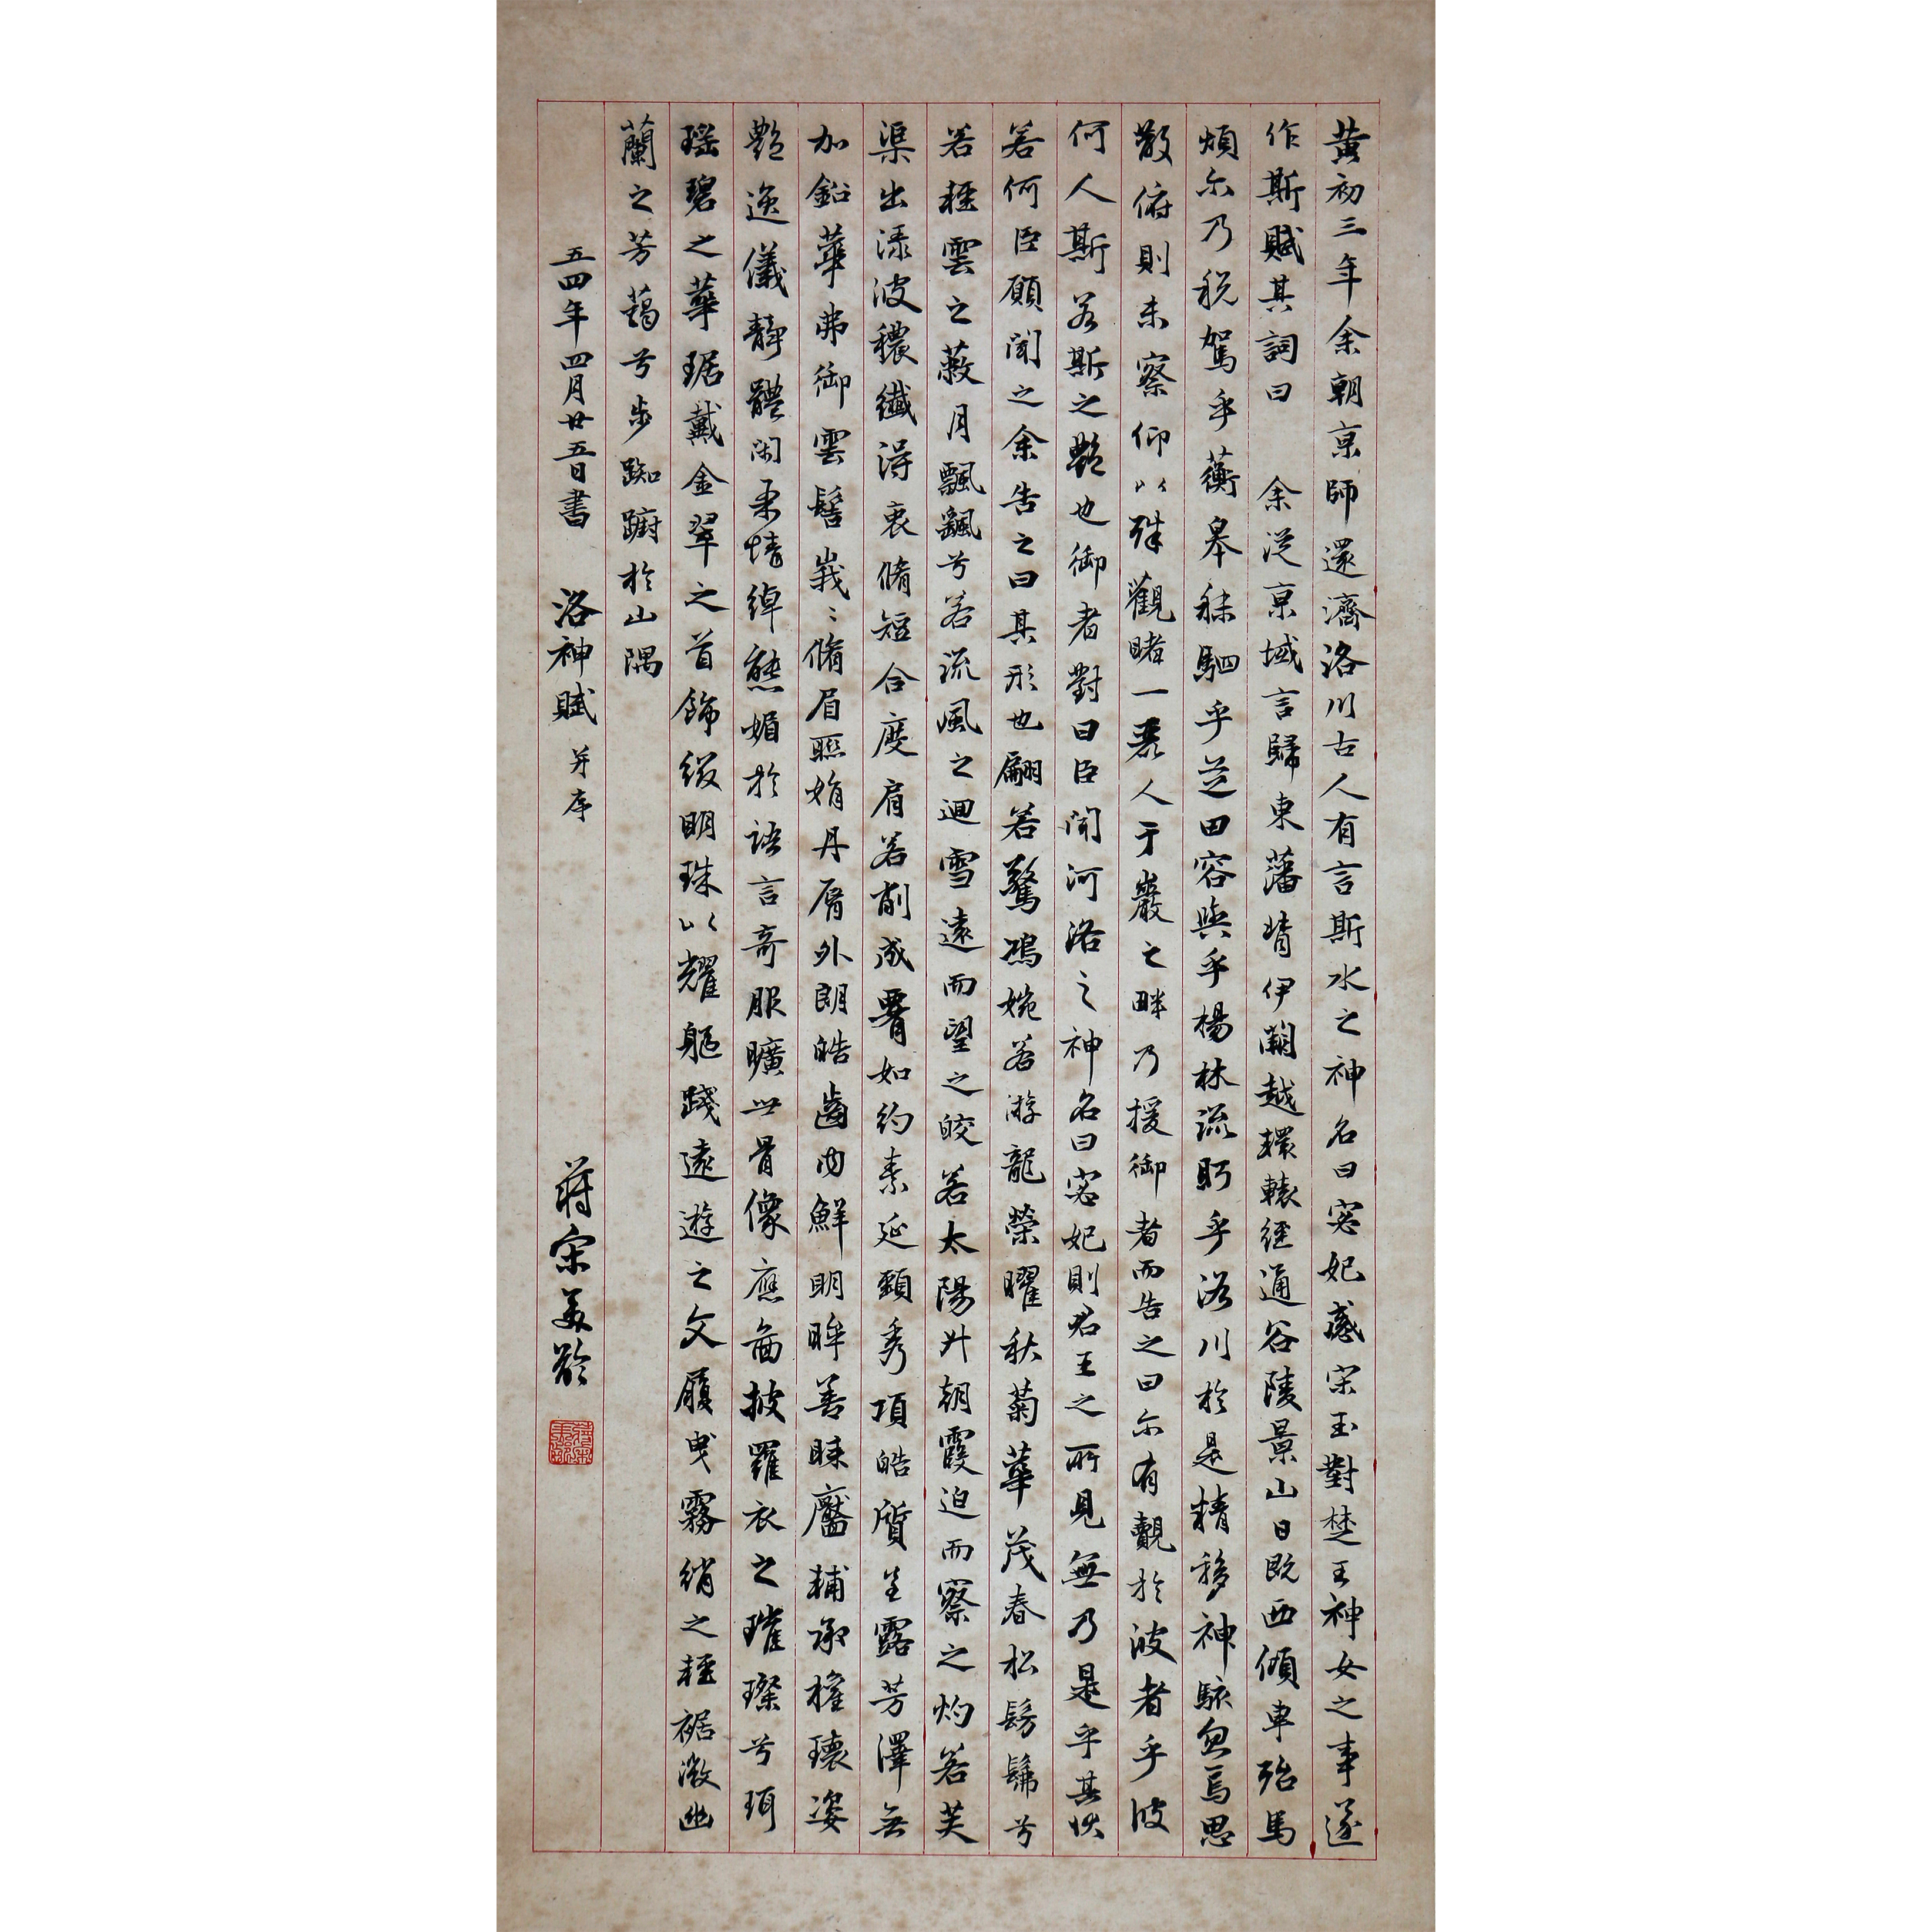 黃初三年余朝京師還濟洛川古人有言斯水之神名曰宓妃感宋玉對楚王神女之事遂
作斯賦其詞曰 余從京域言歸東藩背伊闕越轘轅經通谷陵景山日既西傾車殆馬
煩尔乃税駕乎蘅皋秣駟乎芝田容與乎楊林流眄乎洛川於是精移神駭忽焉思
散俯則未察仰以殊觀睹一麗人于巖之畔乃援御者而告之曰尔有覿於彼者乎彼
何人斯若斯之艷也御者對曰臣聞河洛之神名曰宓妃則君王之所見無乃是乎其狀
若何臣願聞之余告之曰其形也翩若驚鴻婉若游龍榮曜秋菊華茂春松髣髴兮
若輕雲之蔽月飄飖兮若流風之迴雪遠而望之皎若太陽升朝霞迫而察之灼若芙
渠出淥波穠纖得衷脩短合度肩若削成腰如約素延頸秀項皓質呈露芳澤無
加鉛華弗御雲髻峩〻脩眉聯娟丹脣外朗皓齒内鮮明眸善睞靨輔承權瓌姿
艷逸儀靜體閑柔情綽態媚於語言奇服曠世骨像應啚披羅衣之璀璨兮珥
瑶碧之華琚戴金翠之首飾綴明珠以耀軀踐遠遊之文履曳霧綃之輕裾微幽
蘭之芳藹兮步踟躕於山隅
五四年四月廿五日書 洛神賦 并序 蔣宋美齡
蔣宋美齡